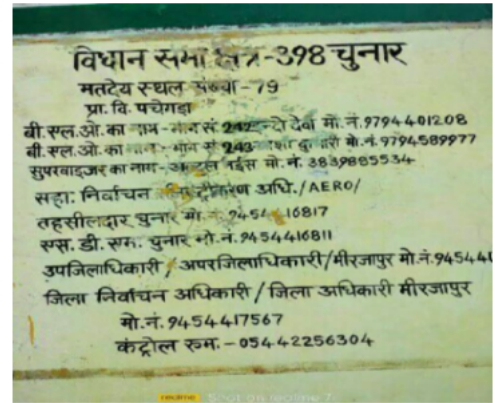 विधान सभा क्षेत्र-398 चुनार
मतदेय स्थल संख्या - 79
प्रा. वि. पचेगड़ा
बी.एल.ओ. का नाम - भाग सं. 242 देवी मो. नं. 9794401208
बी.एल.ओ. का भाग सं. 243 मो. नं. 9794589977
सुपरवाइजर का नाम - मो. नं. 3839885534
सहा. निर्वाचन अधि./AERO/
तहसीलदार चुनार मो. 9454416817
एस. डी. एम. चुनार मो. नं. 9454416811
उपजिलाधिकारी / अपरजिलाधिकारी/मीरजापुर मो. नं. 945441
जिला निर्वाचन अधिकारी / जिला अधिकारी मीरजापुर
मो. नं. 9454417567
कंट्रोल रुम. - 05442256304
realme Shot on realme 7i